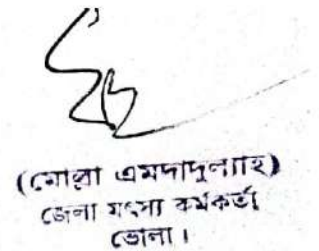 (মোল্লা এমদাদুল্যাহ)
জেলা মৎস্য কর্মকর্তা
ভোলা।